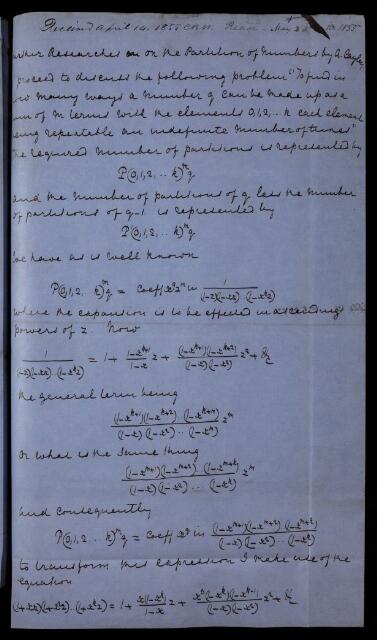 Received April 14. 1855 Read May
Researches on the Partition of Numbers by A. Cayley
proceed to discuss the following problem "To find in
how many ways a number q can be made up as a
sum of m terms with the elements 0,1,2,..k each element
being repeatable an indefinite number of times"
The required number of partitions is represented by
P(0,1,2,..k)^m q
and the number of partitions of q less the number
of partitions of q-1 is represented by
P(0,1,2,..k)^m q
We have as is well known
P(0,1,2,..k)^m q = Coeff x^q z^m in 1/(1-z)(1-xz)..(1-x^k z)
where the expansion is to be effected in ascending
powers of z. Now
1/(1-z)(1-xz)..(1-x^k z) = 1 + (1-x^{k+1})/(1-x) z + (1-x^{k+1})(1-x^{k+2})/(1-x)(1-x^2) z^2 + &c
the general term being
(1-x^{k+1})(1-x^{k+2})..(1-x^{k+m})/(1-x)(1-x^2)..(1-x^m) z^m
or what is the same thing
(1-x^{m+1})(1-x^{m+2})..(1-x^{m+k})/(1-x)(1-x^2)..(1-x^k) z^m
and consequently
P(0,1,2,..k)^m q = coeff x^q in (1-x^{m+1})(1-x^{m+2})..(1-x^{m+k})/(1-x)(1-x^2)..(1-x^k)
to transform this expression I make use of the
equation
(1+xz)(1+x^2z)..(1+x^k z) = 1 + x(1-x^k)/(1-x) z + x^3(1-x^k)(1-x^{k-1})/(1-x)(1-x^2) z^2 + &c